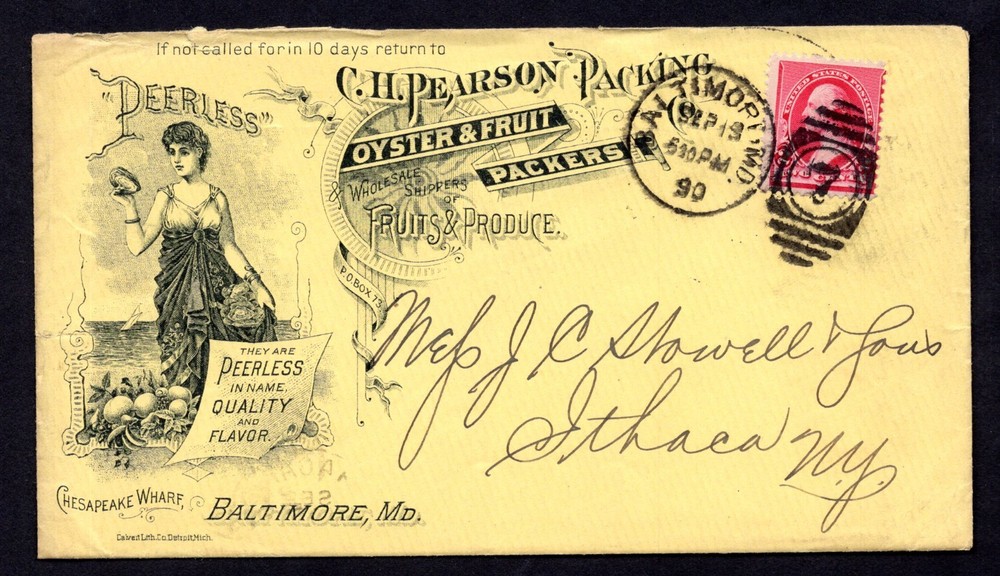 If not called for in 10 days return to
"PEERLESS"
C.H. PEARSON PACKING Co.
OYSTER & FRUIT
PACKERS
& WHOLESALE SHIPPERS
OF
FRUITS & PRODUCE.
P.O. BOX 73
THEY ARE
PEERLESS
IN NAME,
QUALITY
AND
FLAVOR.
CHESAPEAKE WHARF,
BALTIMORE, MD.
Calvert Lith. Co. Detroit, Mich.
BALTIMORE, MD.
SEP 19
530 PM
90
UNITED STATES POSTAGE
Mess J C Stowell & Sons
Ithaca
N.Y.